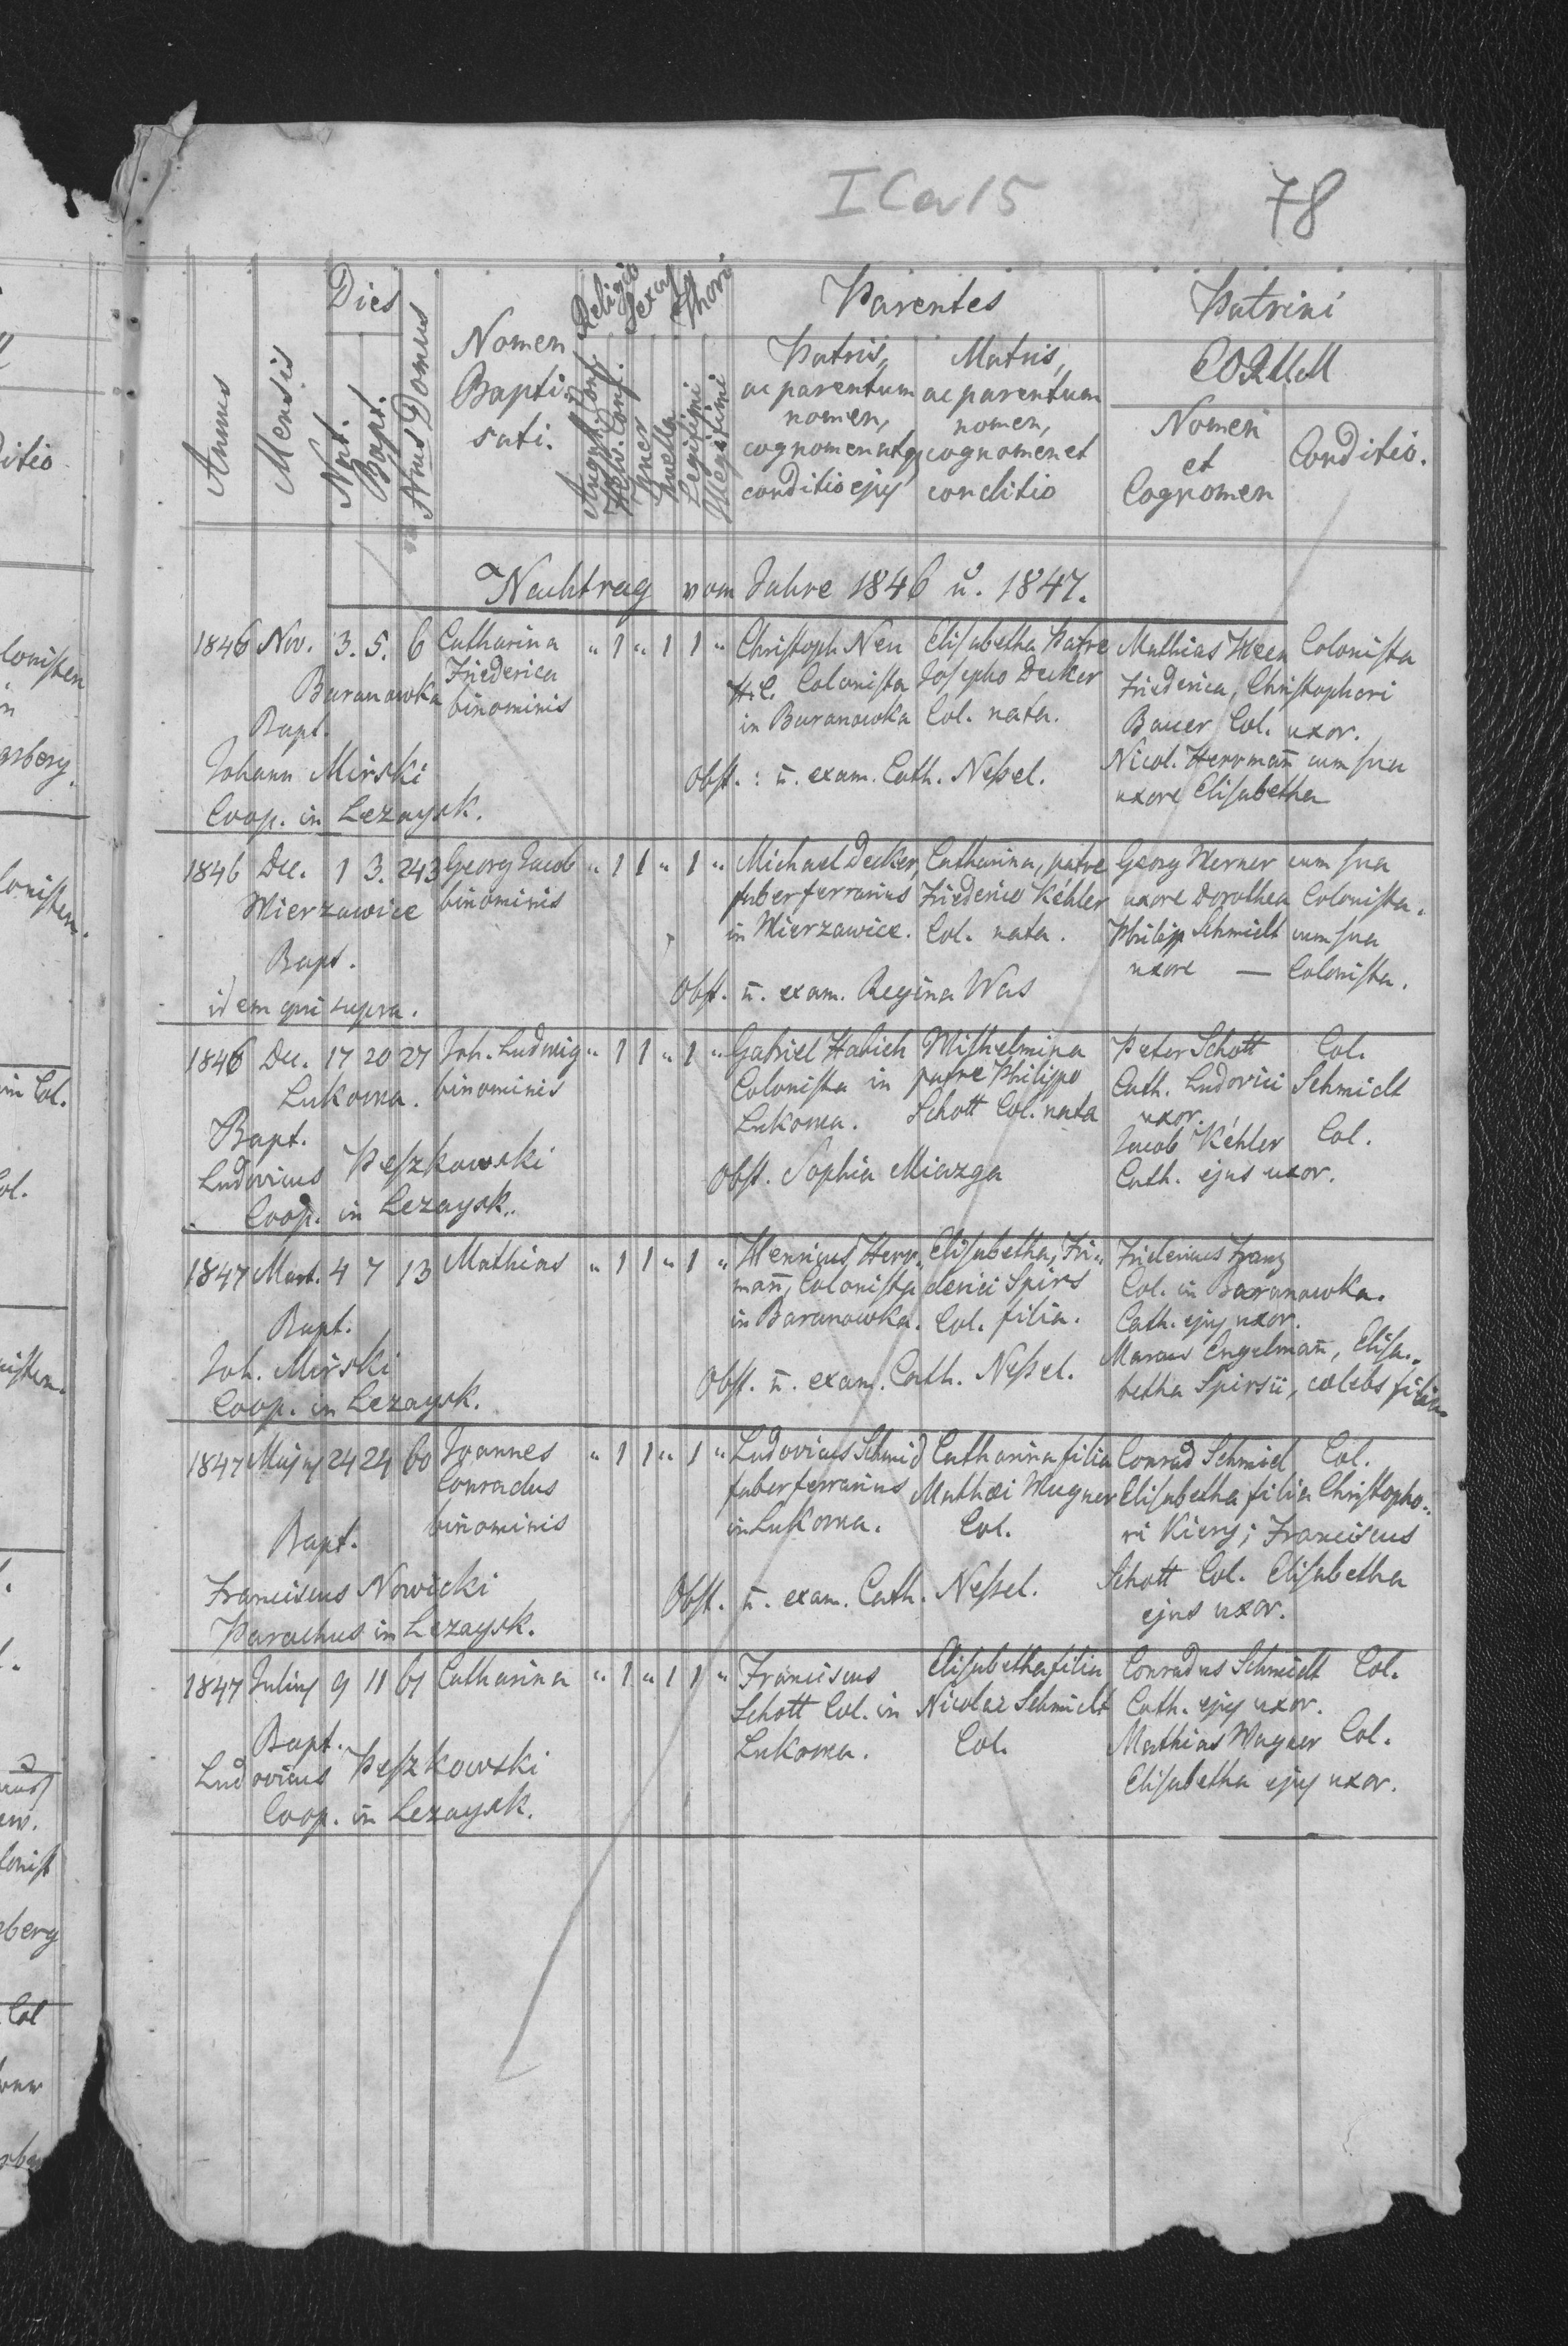 I Ca 15
78
Dies
Religio
Sexus
Thori
Parentes
Patrini
Annus
Mensis
Nat.
Bapt.
Nrus Domus
Nomen
Bapti-
sati.
August. Conf.
Helv. Conf.
Puer
Puella
Legitimi
Illegitimi
Patris,
ac parentum
nomen,
cognomen atq
conditio ejus
Matris,
ac parentum
nomen,
cognomen et
conditio
EORUM
Nomen
et
Cognomen
Conditio.
Nachtrag vom Jahre 1846 u. 1847.
1846 Nov. 3. 5. 6 Catharina " 1 " 1 1 " Christoph Neu Elisabetha Patre Mathias Heen Colonista
Friederica H. C. Colonista Josepho Decker Friederica, Christophori
Baranowka binominis in Baranowka Col. nata. Bauer Col. uxor.
Bapt.
Johann Mirski Obst. : u. exam. Cath. Neßel. Nicol. Herrmañ cum sua
Coop. in Lezaysk. uxore Elisabetha
1846 Dec. 1 3. 243 Georg Jacob " 1 1 " 1 " Michael Decker, Catharina, patre Georg Werner cum sua
Wierzawice binominis faber ferrarius Friederico Kéhler uxore Dorothea Colonista.
in Wierzawice. Col. nata. Philipp Schmidt cum sua
Bapt. uxore — Colonista.
idem qui supra. Obst. u. exam. Regina Was
1846 Dec. 17 20 27 Joh. Ludwig " 1 1 " 1 " Gabriel Habich Wilhelmina Peter Schott Col.
Lukowa. binominis Colonista in patre Philippo Cath. Ludovici Schmidt
Lukowa. Schott Col. nata uxor.
Bapt. Jacob Kéhler Col.
Ludovicus Peszkowski Obst. Sophia Miazga Cath. ejus uxor.
Coop. in Lezaysk.
1847 Mart. 4 7 13 Mathias " 1 1 " 1 " Henricus Herr- Elisabetha, Fri- Fridericus Franz
mañ, Colonista derici Spirs Col. in Baranowka.
in Baranowka. Col. filia. Cath. ejus uxor.
Bapt.
Joh. Mirski Obst. u. exam. Cath. Neßel. Marcus Engelmañ, Elisa-
Coop. in Lezaysk. betha Spirsii, cœlebs filia
1847 Majus 24 24 60 Joannes " 1 1 " 1 " Ludovicus Schmid Catharina filia Conrad Schmid Col.
Conradus faber ferrarius Mathæi Wagner Elisabetha filia Christopho-
binominis in Lukowa. Col. ri Kiery; Franciscus
Bapt.
Franciscus Nowicki Obst. u. exam. Cath. Neßel. Schott Col. Elisabetha
Parochus in Lezaysk. ejus uxor.
1847 Julius 9 11 61 Catharina " 1 " 1 1 " Franciscus Elisabetha filia Conradus Schmidt Col.
Schott Col. in Nicolai Schmidt Cath. ejus uxor.
Bapt. Lukowa. Col. Mathias Wagner Col.
Ludovicus Peszkowski Elisabetha ejus uxor.
Coop. in Lezaysk.